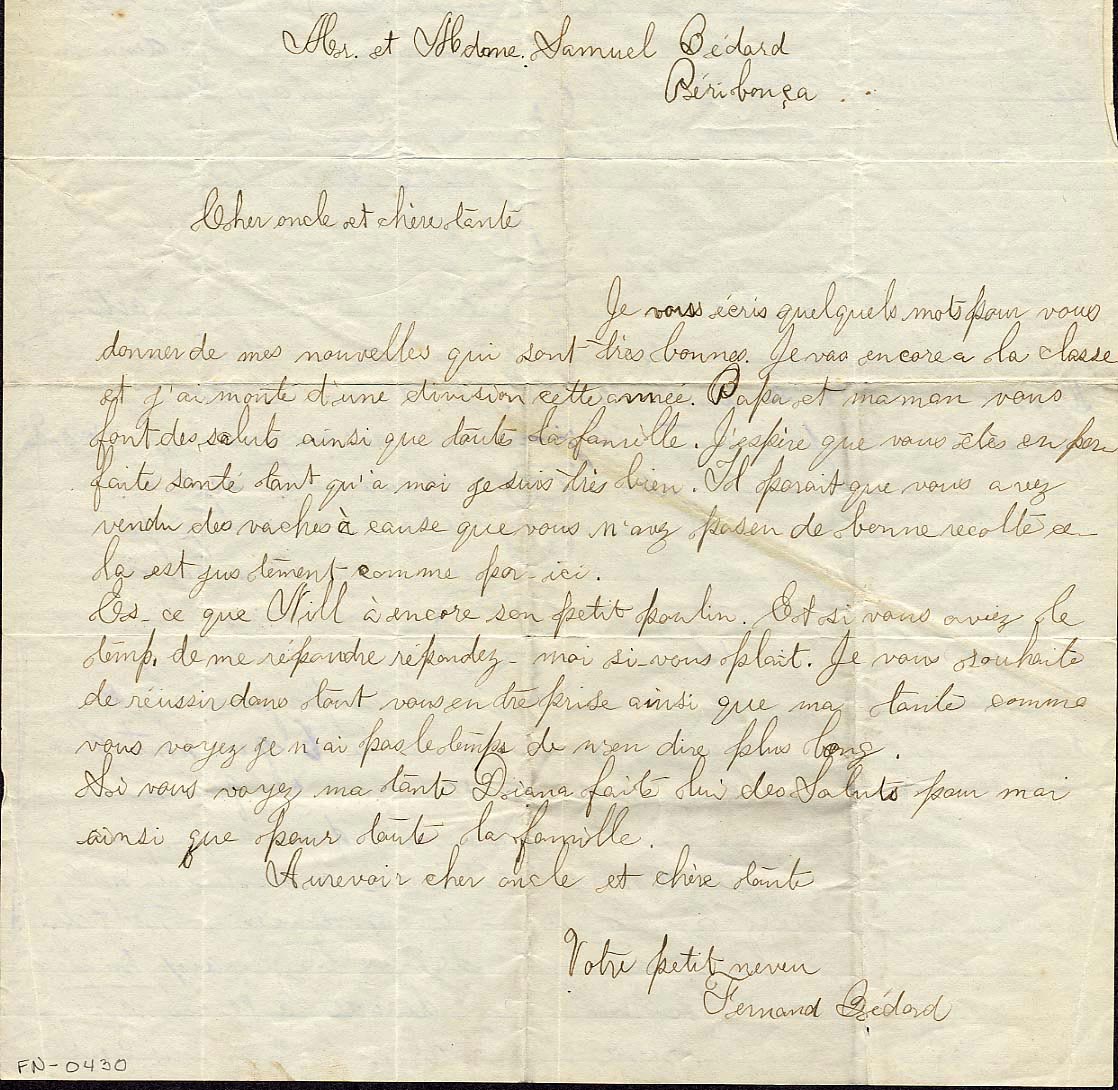 Mr. et Mdme. Samuel Bédard
Péribonça
Cher oncle et chère tante
Je vous écris quelquels mots pour vous
donner de mes nouvelles qui sont très bonnes. Je vas encore a la classe
et j'ai monté d'une division cette année. Papa et maman vous
font des saluts ainsi que toute la famille. J'espère que vous êtes en par
faite santé tant qu'à moi je suis très bien. Il parait que vous avez
vendu des vaches à cause que vous n'avez pas eu de bonne recolte ce-
la est justement comme par-ici.
Es-ce que Will à encore son petit poulin. Et si vous aviez le
temp, de me répondre répondez-moi si-vous plait. Je vous souhaite
de réussir dans tout vous entreprise ainsi que ma tante comme
vous voyez je n'ai pas le temps de n'en dire plus long.
Si vous voyez ma tante Diana faite lui des Saluts pour moi
ainsi que pour toute la famille.
Aurevoir cher oncle et chère tante
Votre petit neveu
Fernand Bédard
FN-0430